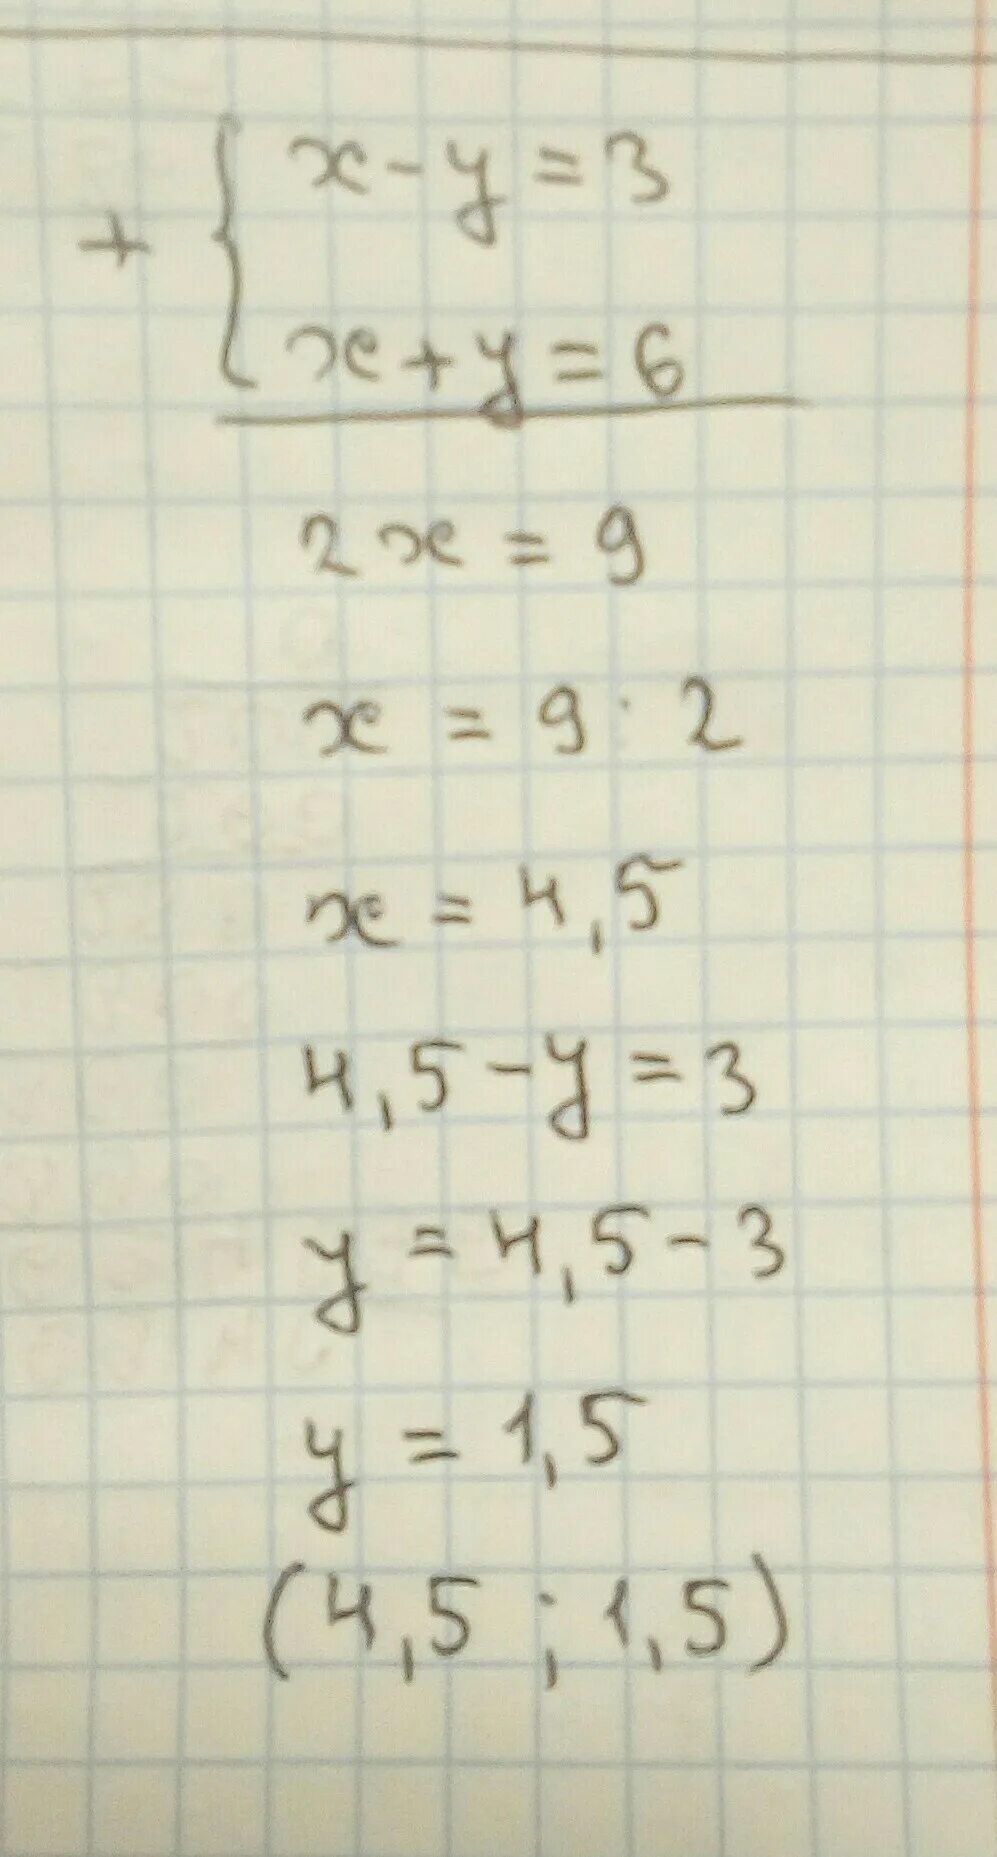 + { x - y = 3
x + y = 6
2x = 9
x = 9 : 2
x = 4,5
4,5 - y = 3
y = 4,5 - 3
y = 1,5
(4,5 ; 1,5)